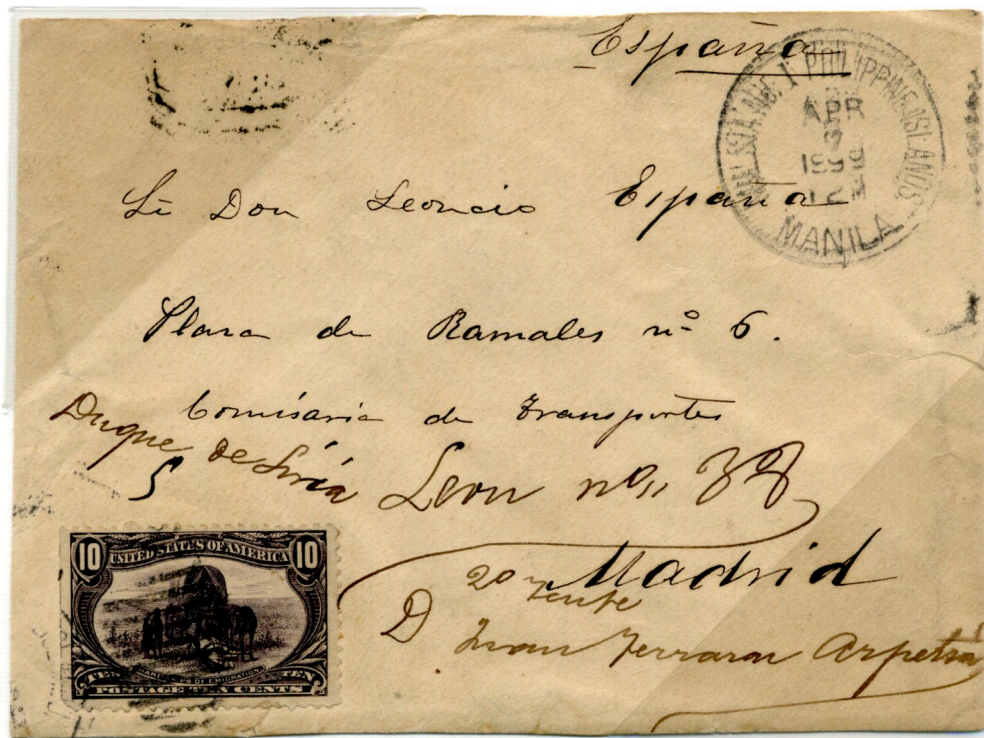 España
MIL. STA. NO. 1 PHILIPPINE ISLANDS
APR
1899
12 M
MANILA
Don Leoncio España
Plaza de Ramales nº 6.
Comisaria de Transportes
Duque de Liria
5
Leon nº 38
Madrid
D Juan Ferraron
10 UNITED STATES OF AMERICA 10
TEN TEN
POSTAGE TEN CENTS